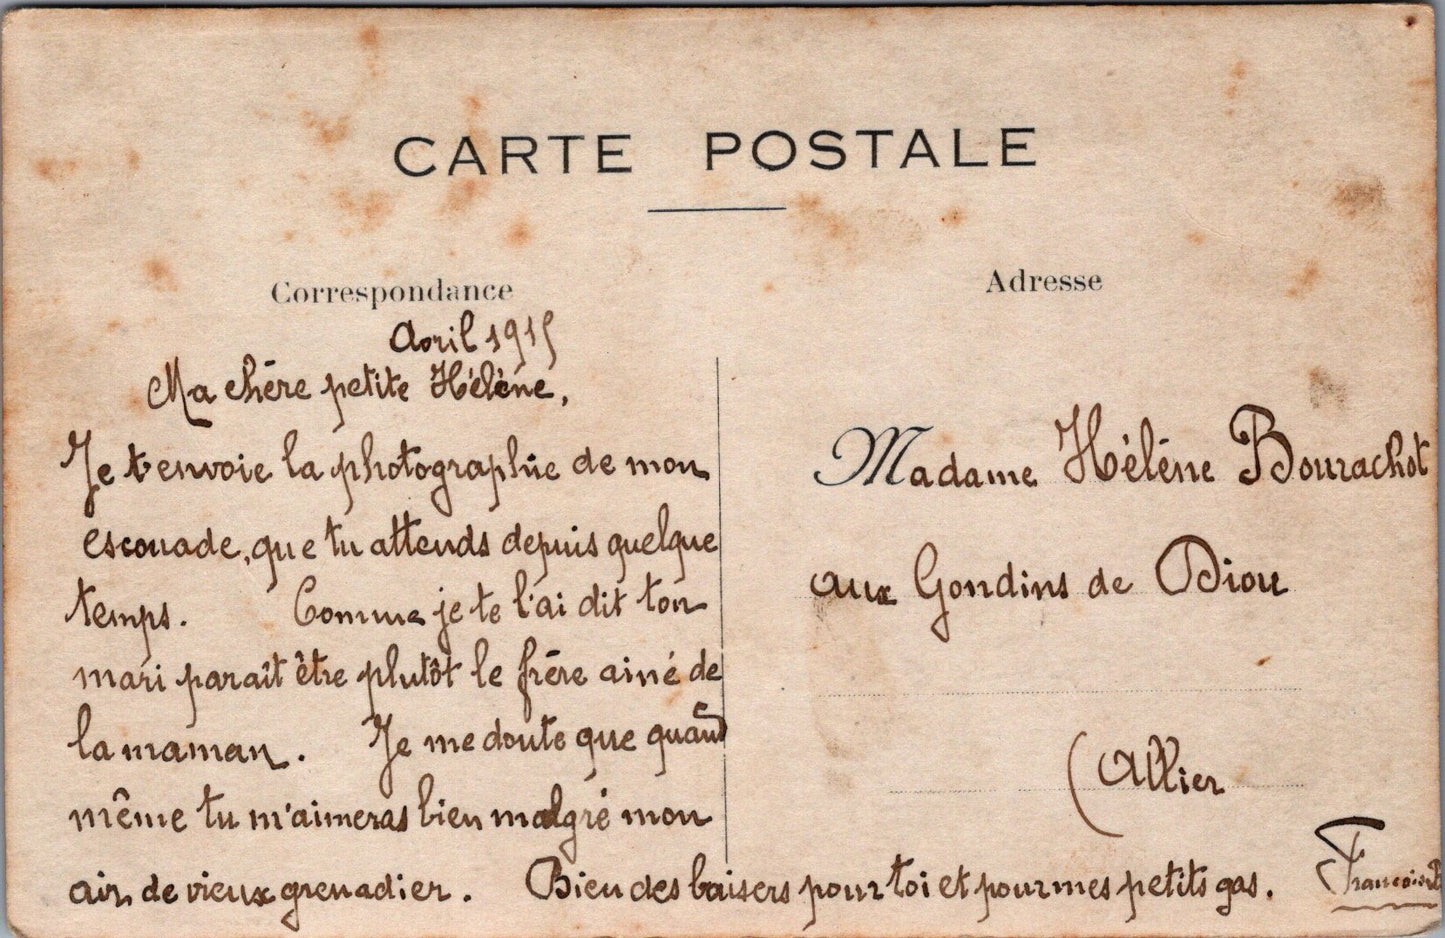 CARTE POSTALE
Correspondance
Avril 1915
Ma chère petite Hélène,
Je t'envoie la photographie de mon
escouade, que tu attends depuis quelque
temps. Comme je te l'ai dit ton
mari paraît être plutôt le frère ainé de
la maman. Je me doute que quand
même tu m'aimeras bien malgré mon
air de vieux grenadier. Bien des baisers pour toi et pour mes petits gas.
Adresse
Madame Hélène Bourachot
aux Gondins de Diou
(Allier